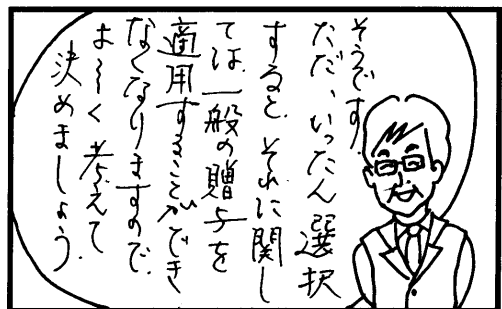 そうです。
ただ、いったん選択
すると、それに関し
ては、一般の贈与を
適用することができ
なくなりますので、
よ〜く考えて
決めましょう。